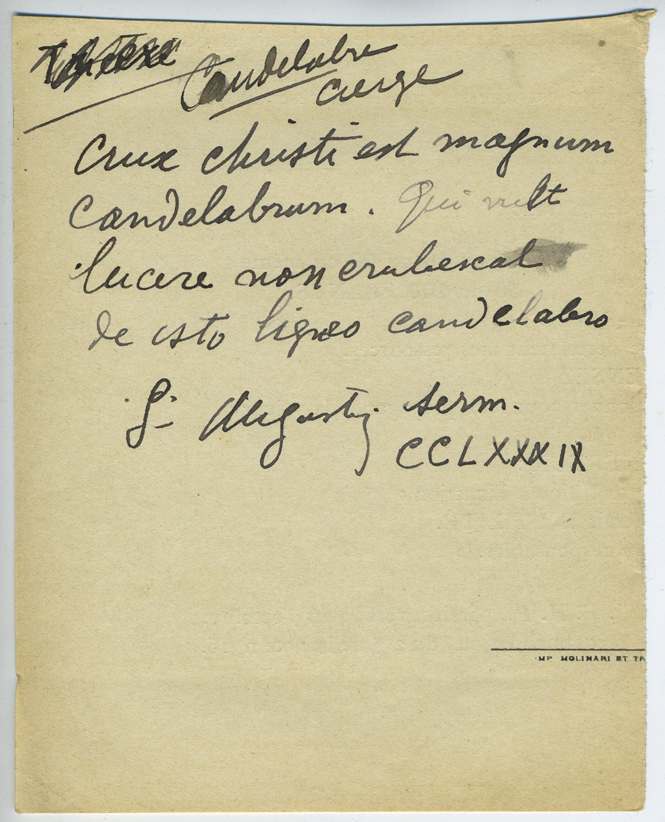 Candelabre
cierge
Crux christi est magnum
Candelabrum. Qui vult
lucere non erubescat
de isto ligneo candelabro
S. Augusti serm.
CCLXXXIX
MP. MOLINARI ET